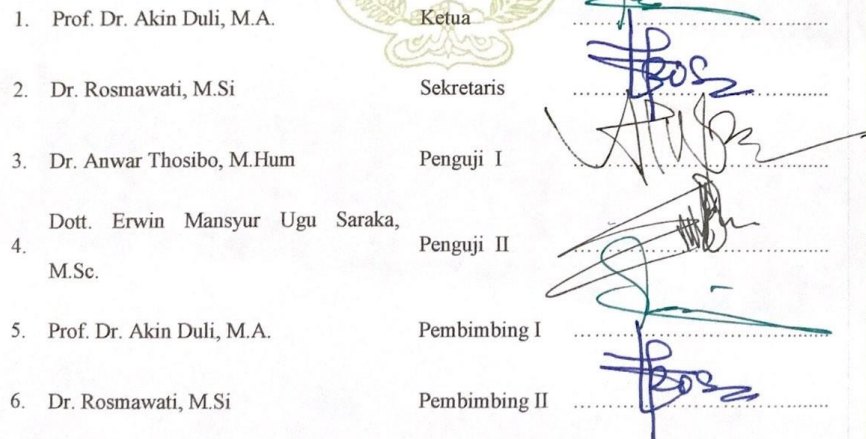 1. Prof. Dr. Akin Duli, M.A. Ketua ..............................
2. Dr. Rosmawati, M.Si Sekretaris ..............................
3. Dr. Anwar Thosibo, M.Hum Penguji I ..............................
4. Dott. Erwin Mansyur Ugu Saraka, M.Sc. Penguji II ..............................
5. Prof. Dr. Akin Duli, M.A. Pembimbing I ..............................
6. Dr. Rosmawati, M.Si Pembimbing II ..............................